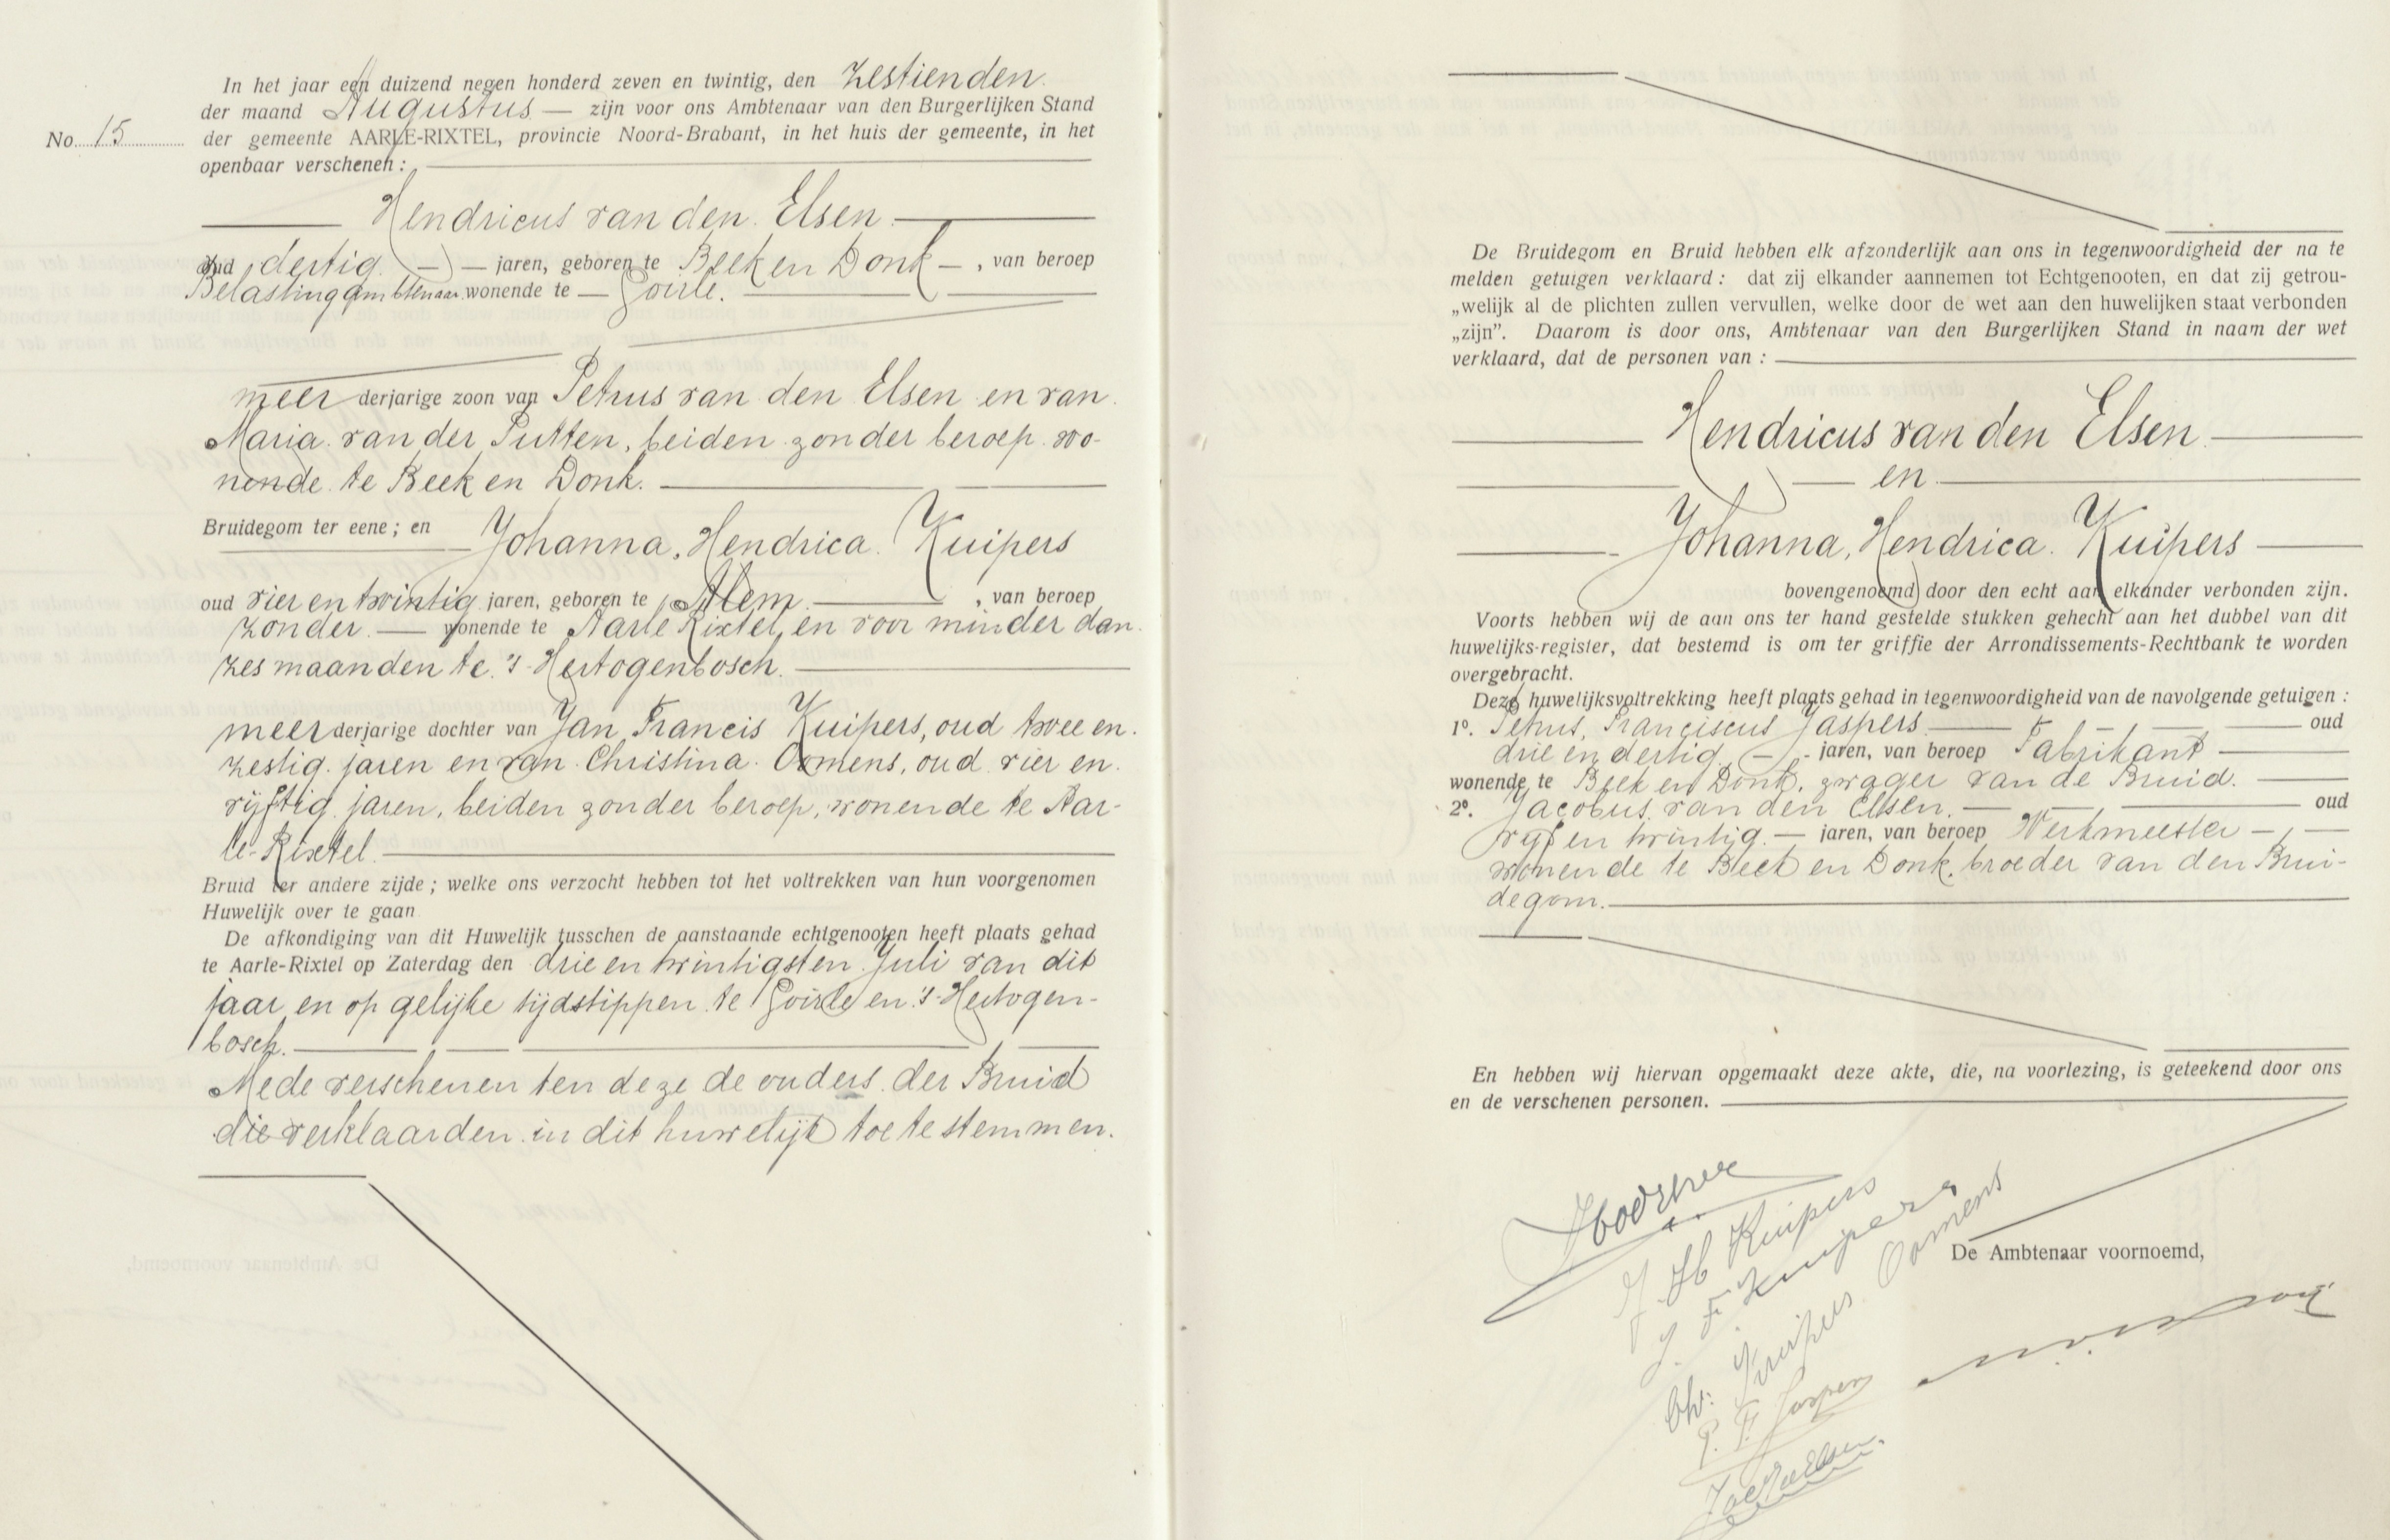 In het jaar een duizend negen honderd zeven en twintig, den zestienden
der maand Augustus — zijn voor ons Ambtenaar van den Burgerlijken Stand
No. 15 der gemeente AARLE-RIXTEL, provincie Noord-Brabant, in het huis der gemeente, in het
openbaar verschenen :
Hendricus van den Elsen
oud dertig — jaren, geboren te Beek en Donk — , van beroep
Belastingambtenaar wonende te — Goirle.
meer derjarige zoon van Petrus van den Elsen en van
Maria van der Putten, beiden zonder beroep wo-
nende te Beek en Donk.
Bruidegom ter eene ; en Johanna, Hendrica Kuipers
oud vier en twintig jaren, geboren te Alem , van beroep
zonder — wonende te Aarle Rixtel, en voor minder dan
zes maanden te 's-Hertogenbosch.
meer derjarige dochter van Jan Francis Kuipers, oud twee en
zestig jaren en van Christina Oomens, oud vier en
vijftig jaren, beiden zonder beroep, wonende te Aar-
le-Rixtel
Bruid ter andere zijde ; welke ons verzocht hebben tot het voltrekken van hun voorgenomen
Huwelijk over te gaan
De afkondiging van dit Huwelijk tusschen de aanstaande echtgenooten heeft plaats gehad
te Aarle-Rixtel op Zaterdag den drie en twintigsten Juli van dit
jaar en op gelijke tijdstippen te Goirle en 's-Hertogen-
bosch.
Mede verschenen ten deze de ouders der Bruid
die verklaarden in dit huwelijk toe te stemmen.
De Bruidegom en Bruid hebben elk afzonderlijk aan ons in tegenwoordigheid der na te
melden getuigen verklaard : dat zij elkander aannemen tot Echtgenooten, en dat zij getrou-
„welijk al de plichten zullen vervullen, welke door de wet aan den huwelijken staat verbonden
„zijn”. Daarom is door ons, Ambtenaar van den Burgerlijken Stand in naam der wet
verklaard, dat de personen van :
Hendricus van den Elsen
— en
Johanna, Hendrica Kuipers
bovengenoemd door den echt aan elkander verbonden zijn.
Voorts hebben wij de aan ons ter hand gestelde stukken gehecht aan het dubbel van dit
huwelijks-register, dat bestemd is om ter griffie der Arrondissements-Rechtbank te worden
overgebracht.
Deze huwelijksvoltrekking heeft plaats gehad in tegenwoordigheid van de navolgende getuigen :
1º. Petrus, Franciscus Jaspers oud
drie en dertig — jaren, van beroep Fabrikant
wonende te Beek en Donk, zwager van de Bruid.
2º. Jacobus van den Elsen. oud
vijf en twintig — jaren, van beroep Werkmeester —
wonende te Beek en Donk, broeder van den Brui-
degom.
En hebben wij hiervan opgemaakt deze akte, die, na voorlezing, is geteekend door ons
en de verschenen personen.
J. H Kuipers
J. F. Kuijpers
Ch. Kuipers Oomens
P. F. Jaspers
De Ambtenaar voornoemd,